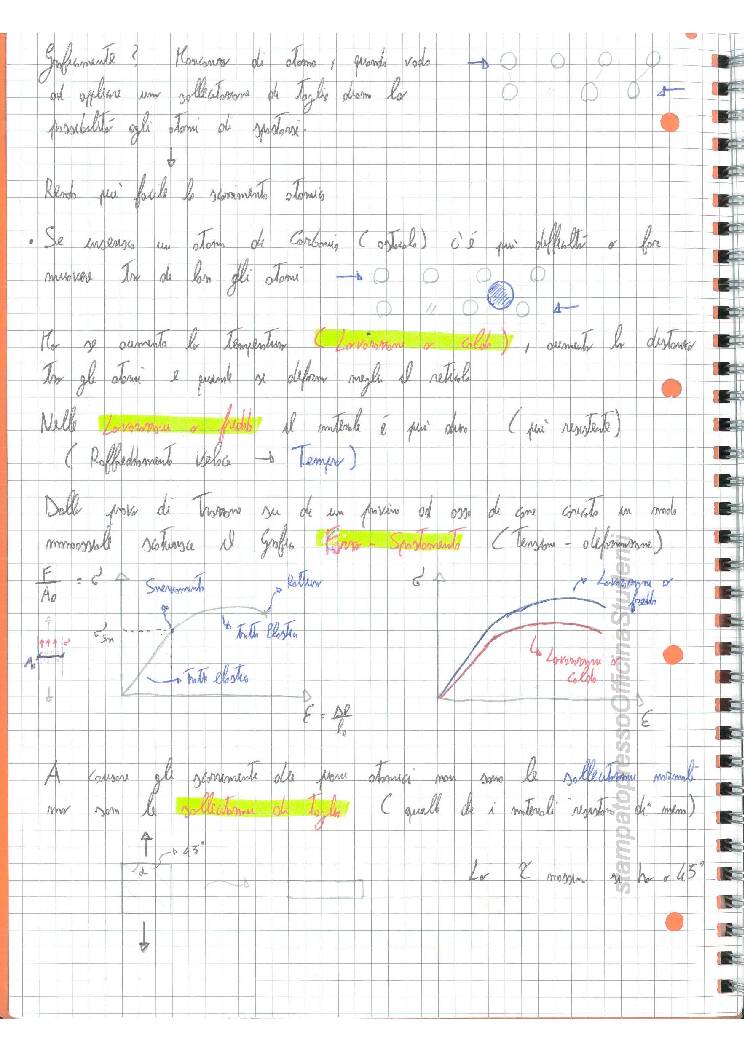 Graficamente? Mancanza di atomo, quando vado
ad applicare una sollecitazione di taglio diamo la
possibilità agli atomi di spostarsi.
Rendo più facile lo scorrimento atomico
• Se inserisco un atomo di Carbonio (ostacolo) c'è più difficoltà a far
muovere tra di loro gli atomi
Ma se aumento la temperatura (Lavorazione a caldo), aumenta la distanza
tra gli atomi e quindi si deforma meglio il reticolo
Nelle Lavorazioni a freddo il materiale è più duro (più resistente)
(Raffreddamento veloce → Tempra)
Dalla prova di Trazione su di un provino ad osso di cane caricato in modo
monoassiale scaturisce il Grafico Forza - Spostamento (Tensione - deformazione)
F/A0 = σ
Snervamento
Rottura
σsn
Tratto Elastico
Tratto elastico
ε = Δl/l0
σ
Lavorazione a freddo
Lavorazione a caldo
ε
A causare gli scorrimenti dei piani atomici non sono le sollecitazioni normali
ma sono le sollecitazioni di taglio (quelle che i materiali resistono di meno)
45°
α
La τ massima si ha a 45°
stampatopressoOfficinaStudenti